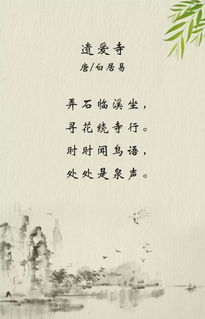 遗爱寺
唐/白居易
弄石临溪坐，
寻花绕寺行。
时时闻鸟语，
处处是泉声。